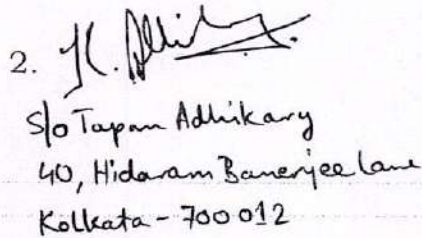 2. K. Adhikary
S/o Tapan Adhikary
40, Hidaram Banerjee Lane
Kolkata - 700012